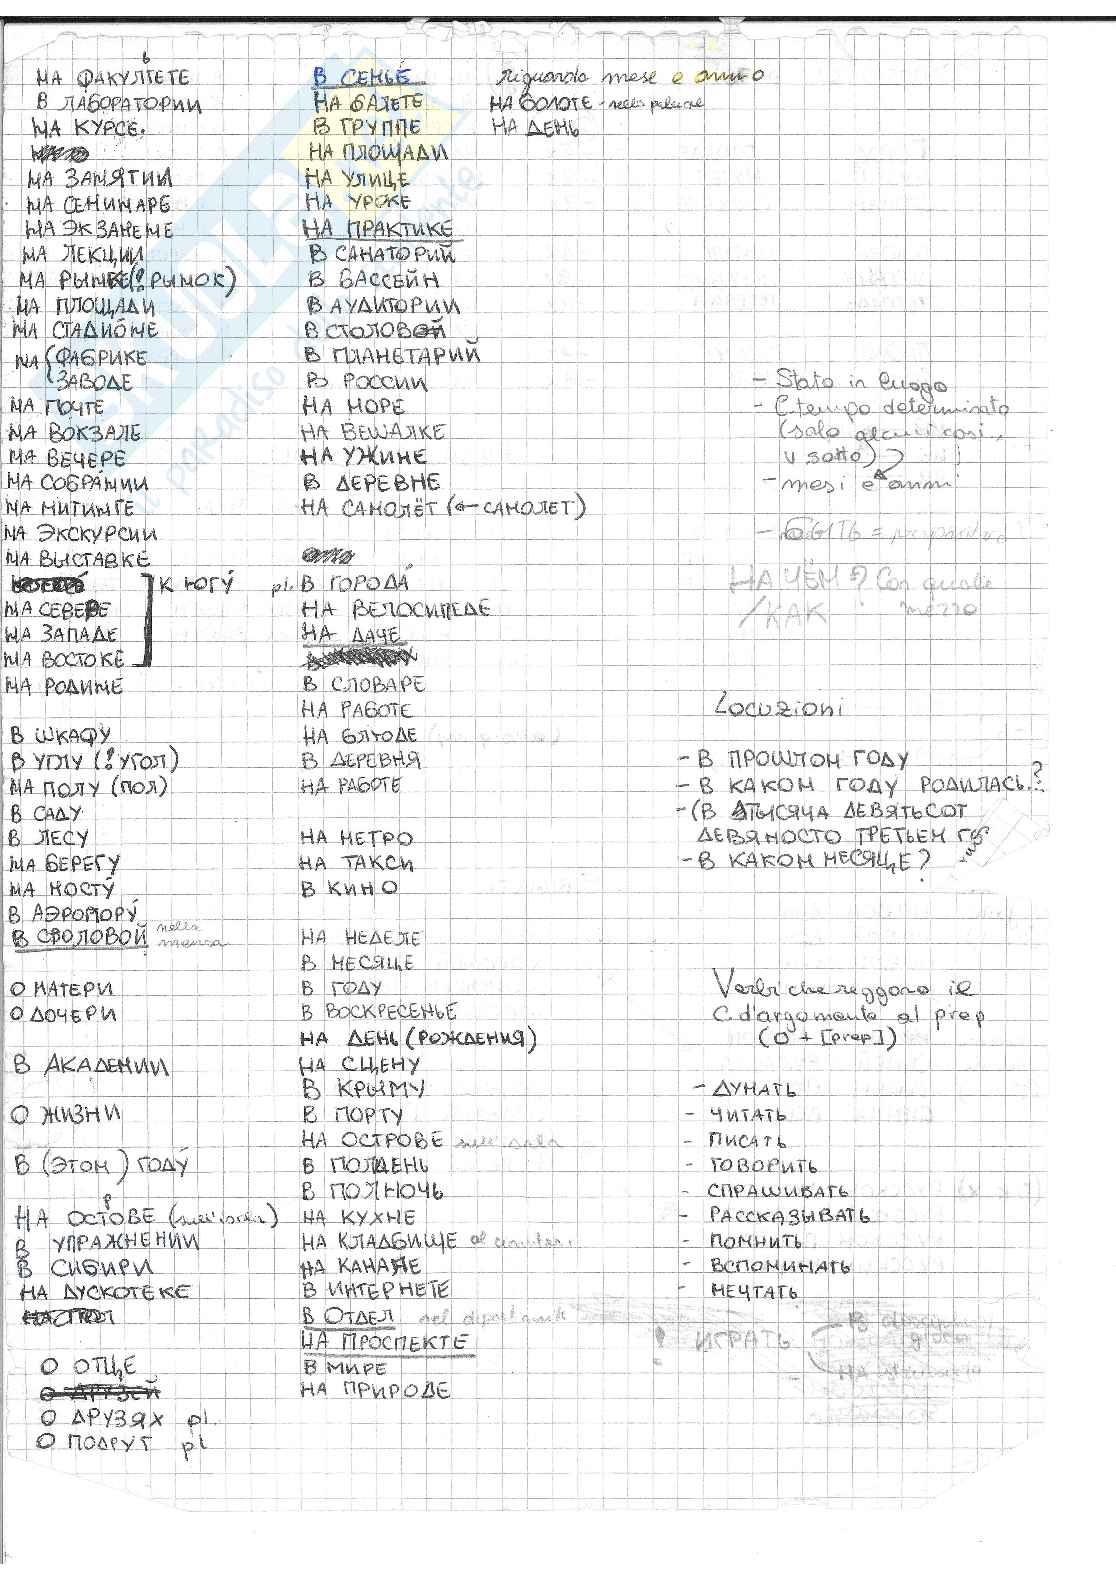 НА ФАКУЛТЕТЕ
ь
В ЛАБОРАТОРИИ
НА КУРСЕ.
НА ЗАНЯТИИ
НА СЕМИНАРЕ
НА ЭКЗАМЕНЕ
НА ЛЕКЦИИ
НА РЫНКЕ(! РЫНОК)
НА ПЛОЩАДИ
НА СТАДИОНЕ
НА { ФАБРИКЕ
ЗАВОДЕ
НА ПОЧТЕ
НА ВОКЗАЛЕ
НА ВЕЧЕРЕ
НА СОБРАНИИ
НА МИТИНГЕ
НА ЭКСКУРСИИ
НА ВЫСТАВКЕ
К ЮГУ
НА СЕВЕРЕ
НА ЗАПАДЕ
НА ВОСТОКЕ
НА РОДИНЕ
В ШКАФУ
В УГЛУ (! УГОЛ)
НА ПОЛУ (ПОЛ)
В САДУ
В ЛЕСУ
НА БЕРЕГУ
НА МОСТУ
В АЭРОПОРУ
В СТОЛОВОЙ nella mensa
О МАТЕРИ
О ДОЧЕРИ
В АКАДЕМИИ
О ЖИЗНИ
В (ЭТОМ) ГОДУ
р
НА ОСТОВЕ (sull'isola)
В УПРАЖНЕНИИ
В СИБИРИ
НА ДУСКОТЕКЕ
О ОТЦЕ
О ДРУЗЕЙ
О ДРУЗЯХ pl.
О ПОДРУГ pl
В СЕМЬЕ
НА БАЛЕТЕ
В ГРУППЕ
НА ПЛОЩАДИ
НА УЛИЦЕ
НА УРОКЕ
НА ПРАКТИКЕ
В САНАТОРИЙ
В БАССЕЙН
В АУДИТОРИИ
В СТОЛОВОЙ
В ПЛАНЕТАРИЙ
В РОССИИ
НА МОРЕ
НА ВЕШАЛКЕ
НА УЖИНЕ
В ДЕРЕВНЕ
НА САМОЛЁТ (← САМОЛЕТ)
pl. В ГОРОДА
НА ВЕЛОСИПЕДЕ
НА ДАЧЕ
В СЛОВАРЕ
НА РАБОТЕ
НА БЛЮДЕ
В ДЕРЕВНЯ
НА РАБОТЕ
НА МЕТРО
НА ТАКСИ
В КИНО
НА НЕДЕЛЕ
В МЕСЯЦЕ
В ГОДУ
В ВОСКРЕСЕНЬЕ
НА ДЕНЬ (РОЖДЕНИЯ)
НА СЦЕНУ
В КРЫМУ
В ПОРТУ
НА ОСТРОВЕ sull'isola
В ПОЛДЕНЬ
В ПОЛНОЧЬ
НА КУХНЕ
НА КЛАДБИЩЕ al cimitero
НА КАНАЛЕ
В ИНТЕРНЕТЕ
В ОТДЕЛ nel dipartimento
НА ПРОСПЕКТЕ
В МИРЕ
НА ПРИРОДЕ
riguardo mese e anno
НА БОЛОТЕ - nella palude
НА ДЕНЬ
- Stato in luogo
- C tempo determinato
(solo alcuni casi,
v sotto)
- mesi e anni
НА ЧЁМ? Con quale
/ КАК mezzo
Locuzioni
- В ПРОШЛОМ ГОДУ
- В КАКОМ ГОДУ РОДИЛАСЬ?
- (В ТЫСЯЧА ДЕВЯТЬСОТ
ДЕВЯНОСТО ТРЕТЬЕМ
- В КАКОМ МЕСЯЦЕ?
Verbi che reggono il
C. d'argomento al prep
(О + [prep])
- ДУМАТЬ
- ЧИТАТЬ
- ПИСАТЬ
- ГОВОРИТЬ
- СПРАШИВАТЬ
- РАССКАЗЫВАТЬ
- ПОМНИТЬ
- ВСПОМИНАТЬ
- МЕЧТАТЬ
! ИГРАТЬ